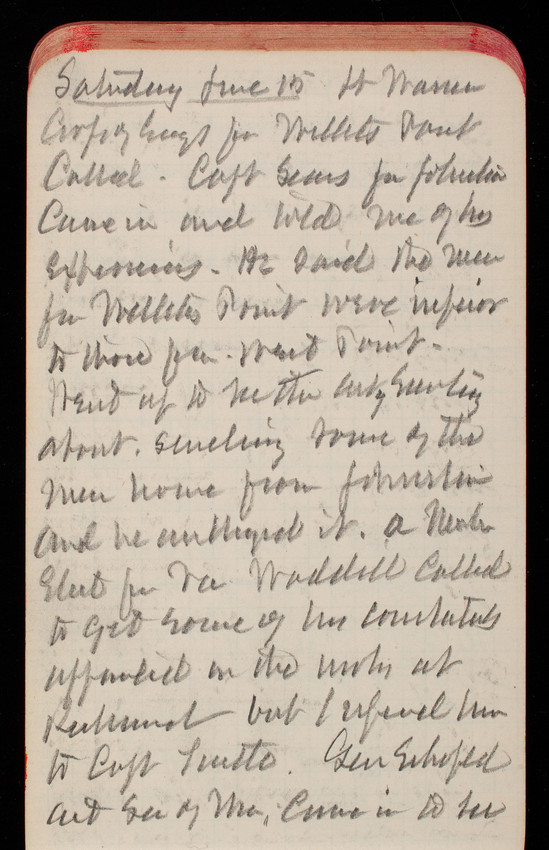 Saturday June 15 Lt Warren
Corps of Engs from Willets Point
Called. Capt Sears from Johnstown
Came in and told me of his
experiences. He said the men
from Willets Point were inferior
to those from West Point.
Went up to see the acty Secretary
about sending some of the
men home from Johnstown
and he authorized it. A Member
Elect from Va Waddill called
to get some of his constituents
appointed on the works at
Richmond but I referred him
to Capt
Gen Schofield
act Sec of War, Came in to see